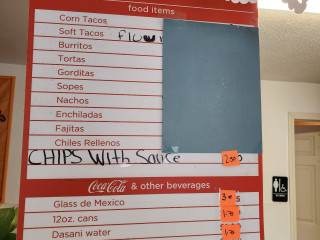 food items
Corn Tacos
Soft Tacos
Burritos
Tortas
Gorditas
Sopes
Nachos
Enchiladas
Fajitas
Chiles Rellenos
CHIPS With Sauce 2.50
Coca-Cola & other beverages
Glass de Mexico
12oz. cans
Dasani water